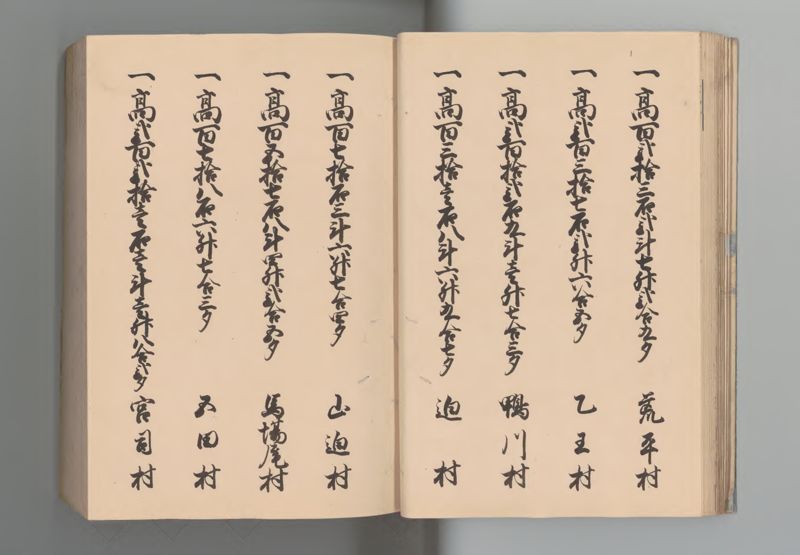 一高百弐拾三石弐斗七升弐合五夕 荒平村
一高弐百三拾七石弐升六合五夕 乙王村
一高弐百拾弐石九斗壱升七合三夕 鴨川村
一高百三拾壱石八斗六升九合七夕 迫村
一高百七拾石三斗六升七合四夕 山迫村
一高百五拾七石八斗四升弐合五夕 馬場尾村
一高百七拾八石六升七合三夕 不田村
一高弐百弐拾壱石壱斗壱升八合弐夕 宮司村